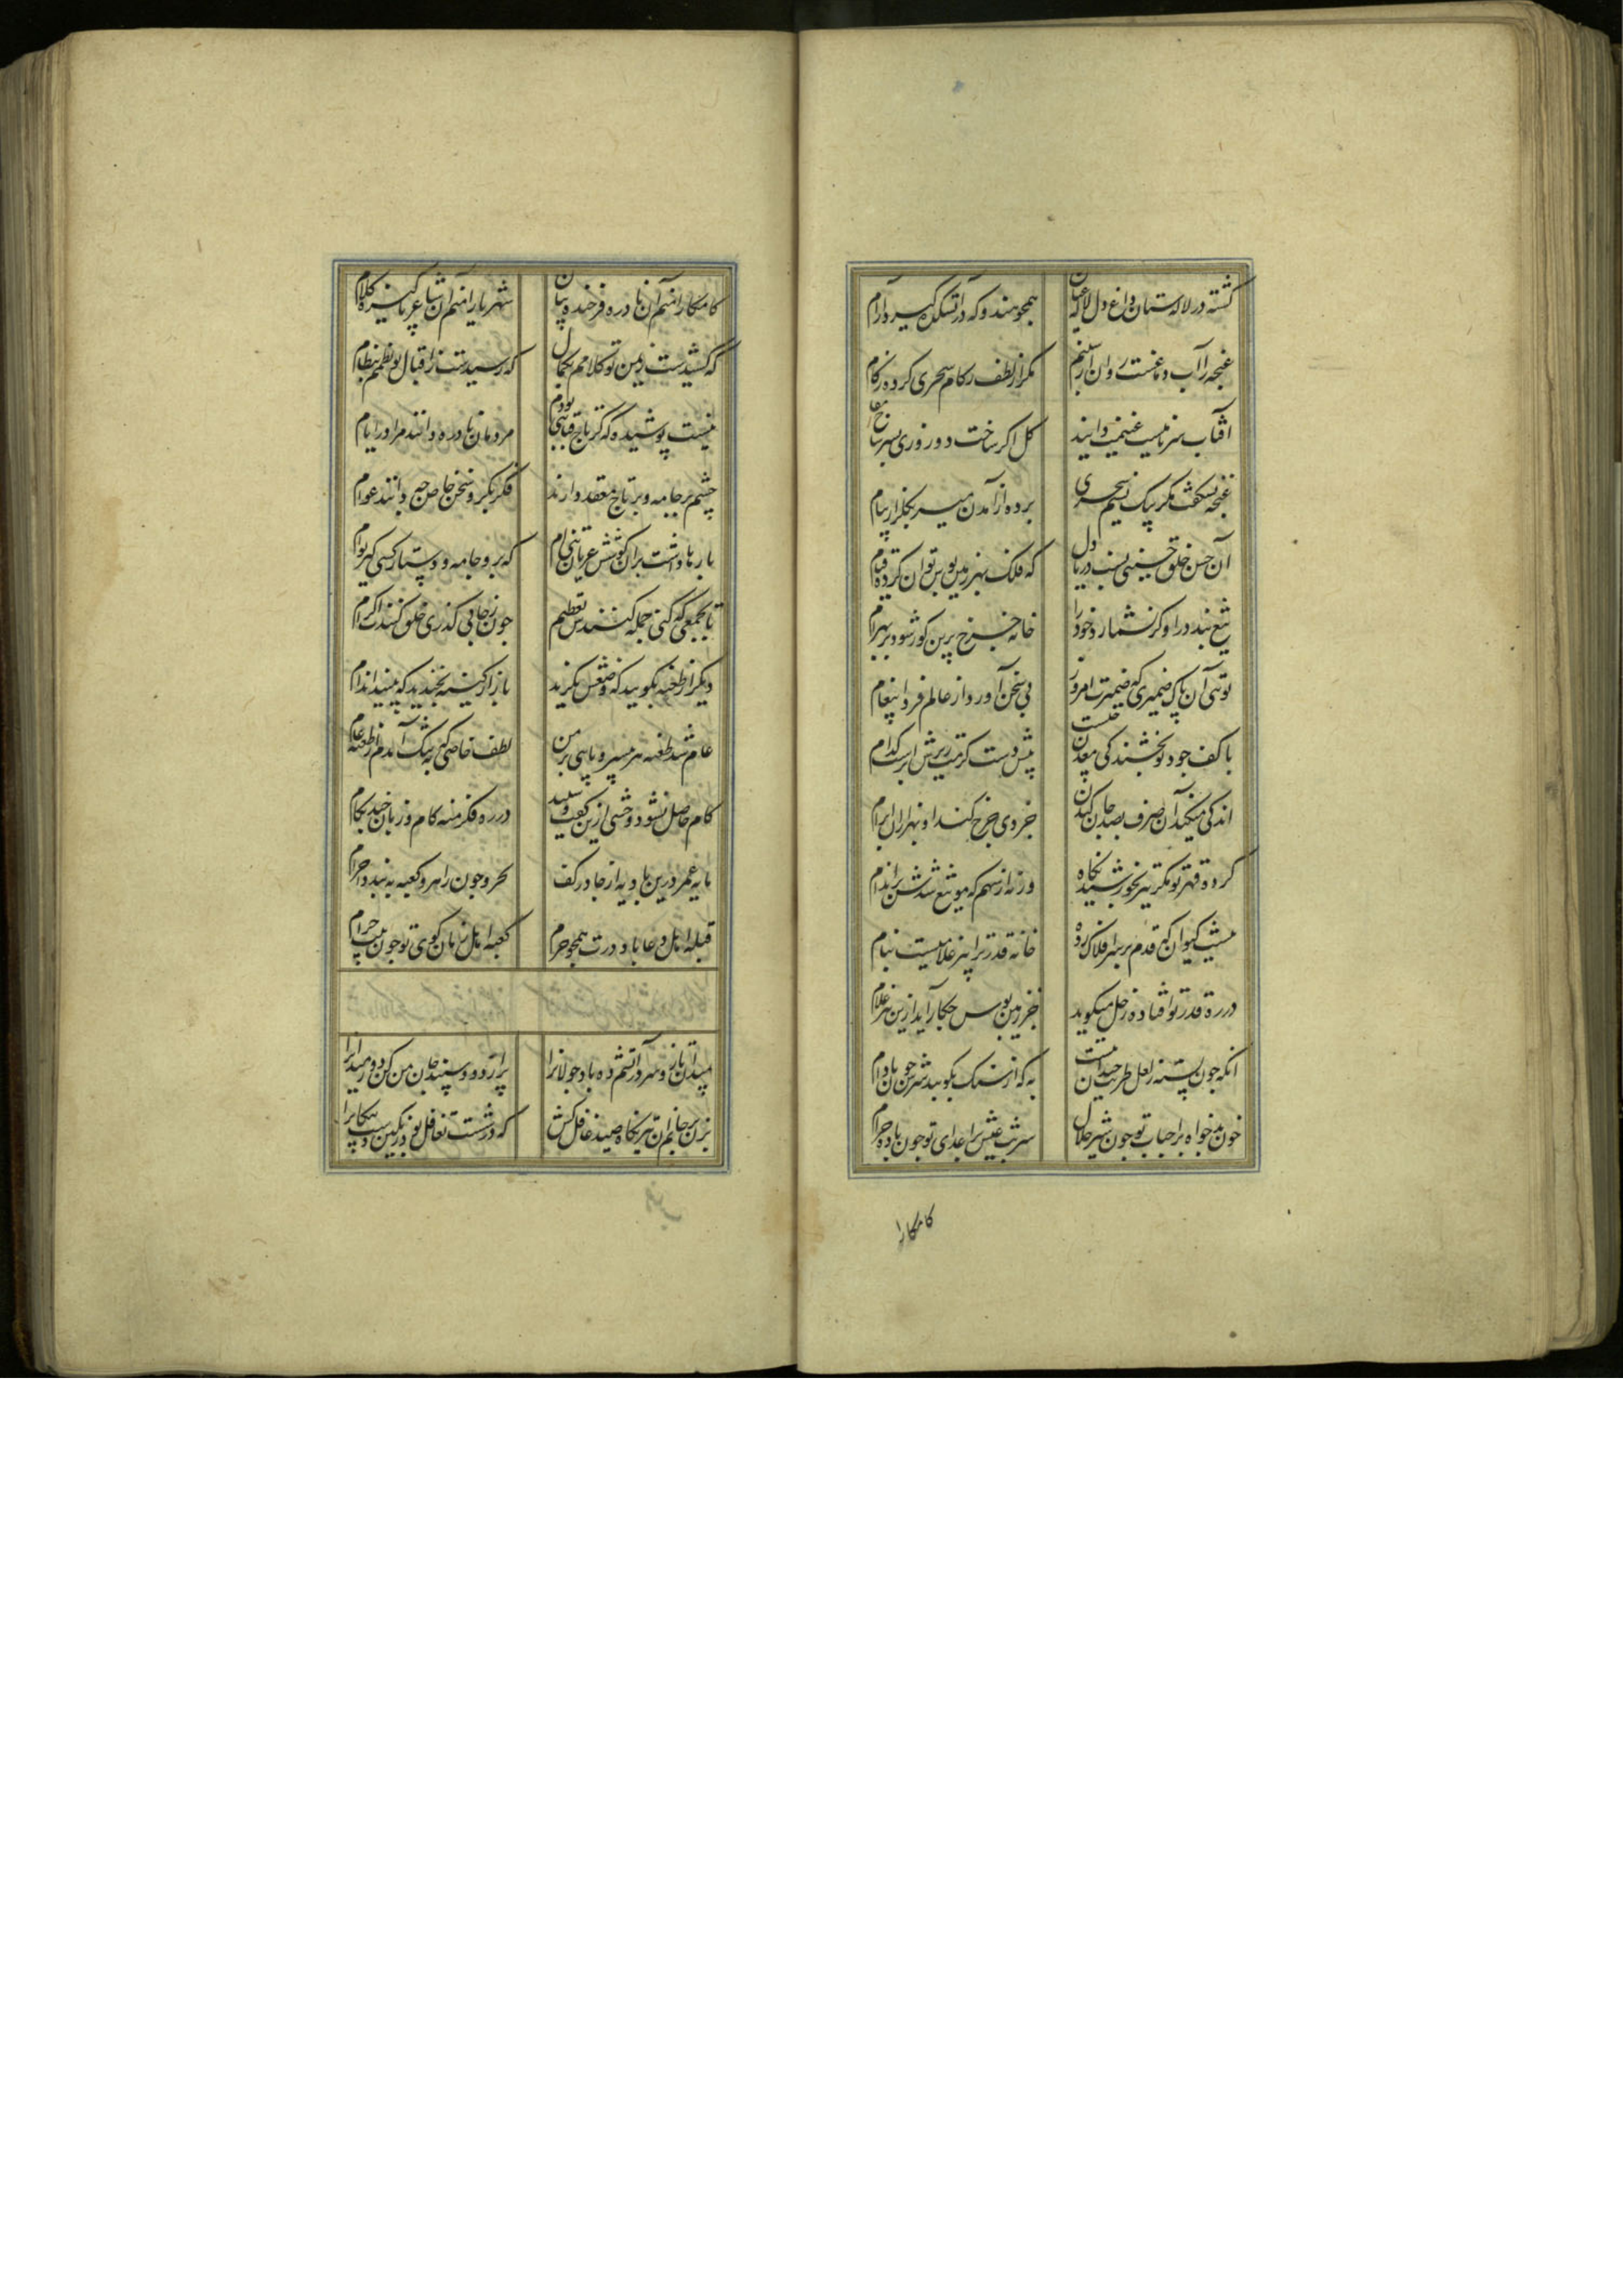 کشته در لاله ستان داغ دل لاله عیان
همچو هندو که در آتشکده گیرد آرام
غنچه را آب دماغست روان از شبنم
مگر از لطف رکام سحری کرده زکام
آفتاب سر ما نیست غنیمت دانید
کل اگر ساخت دو روزی بسر شاخ
غنچه نشکفت مگر پیک نسیم سحری
برده از آمدن میر بگلزار پیام
آن حسن خلق حسینی نسب دریا دل
که فلک بهر زمین بوس تو آن کرده قیام
تیغ بندد در او گر نشمارد خود را
خانه چرخ برین گور شود بر بهرام
توئی آن پاک ضمیری که ضمیرت امروز
بی سخن آورد از عالم فردا پیغام
با کف جود تو بخشندگی معدن چیست
پیش دست کرمت ریزش ابر است کدام
اندکی میکند آن صرف بصد جان کندن
جزوی خرج کند او بهزاران ابرام
کرده قهر تو مگر تیز بخورشید نگاه
ورنه از سهم که مو تیغ شدش بر اندام
نیست کیوان که قدم بر سر افلاک زده
خانه قدر ترا نیز غلامیست ببام
در ره قدر تو افتاده زحل میگوید
جز زمین بوس چکار آید ازین هیچ غلام
آنکه چون پسته ز لعل طربت خندانست
به که از سنگ بکوبند سرش چون بادام
خون بدخواه بر احباب تو چون شیر حلال
شربت عیش بر اعدای تو چون باده حرام
کامکارا
کامکارا منم آن نادره فرخنده بیان
شهریارا منم آن شاعر پاکیزه کلام
که کشیدست ز یمن تو کلامم بکمال
که رسیدست ز اقبال تو نظمم بنظام
نیست پوشیده که گر تاج و قبائی بودم
مردمان نادره دانند مرا در ایام
چشم بر جامه و بر تاج معقد دارند
فکر بکر و سخن خاص چه دانند عوام
بارها داشت بر آن کوشش عریان تنی ام
که برو جامه و دستار کسی گیر بوام
تا بجمعی که کنی جمله کنندت تعظیم
چون ز جائی گذری خلق کنند اکرام
دیگر از طعنه بگویید که وضعش نگرید
باز از کینه بخندید که بینید اندام
عام شد طعنه هر بی سر و پایی بر من
لطف خاصی که بتنگ آمدم از طعنه عام
کام حاصل نشود وحشی ازین گفت و شنید
در ره فکر منه گام و زبان بند بکام
مایه عمر درین بادیه از جا در کف
محرم چون راهرو کعبه ببندد احرام
قبله اهل دعا باد درت همچو حرم
کعبه اهل زمان کوی تو چون بیت حرام
میدان ناز و سر در آتشم ده باد جولانرا
پر از دود سپند جان من کن دور میدانرا
بزن بر جانم آن تیر نگاه صید غافل کش
که در شست تغافل بود رنگین داشت پیکانرا